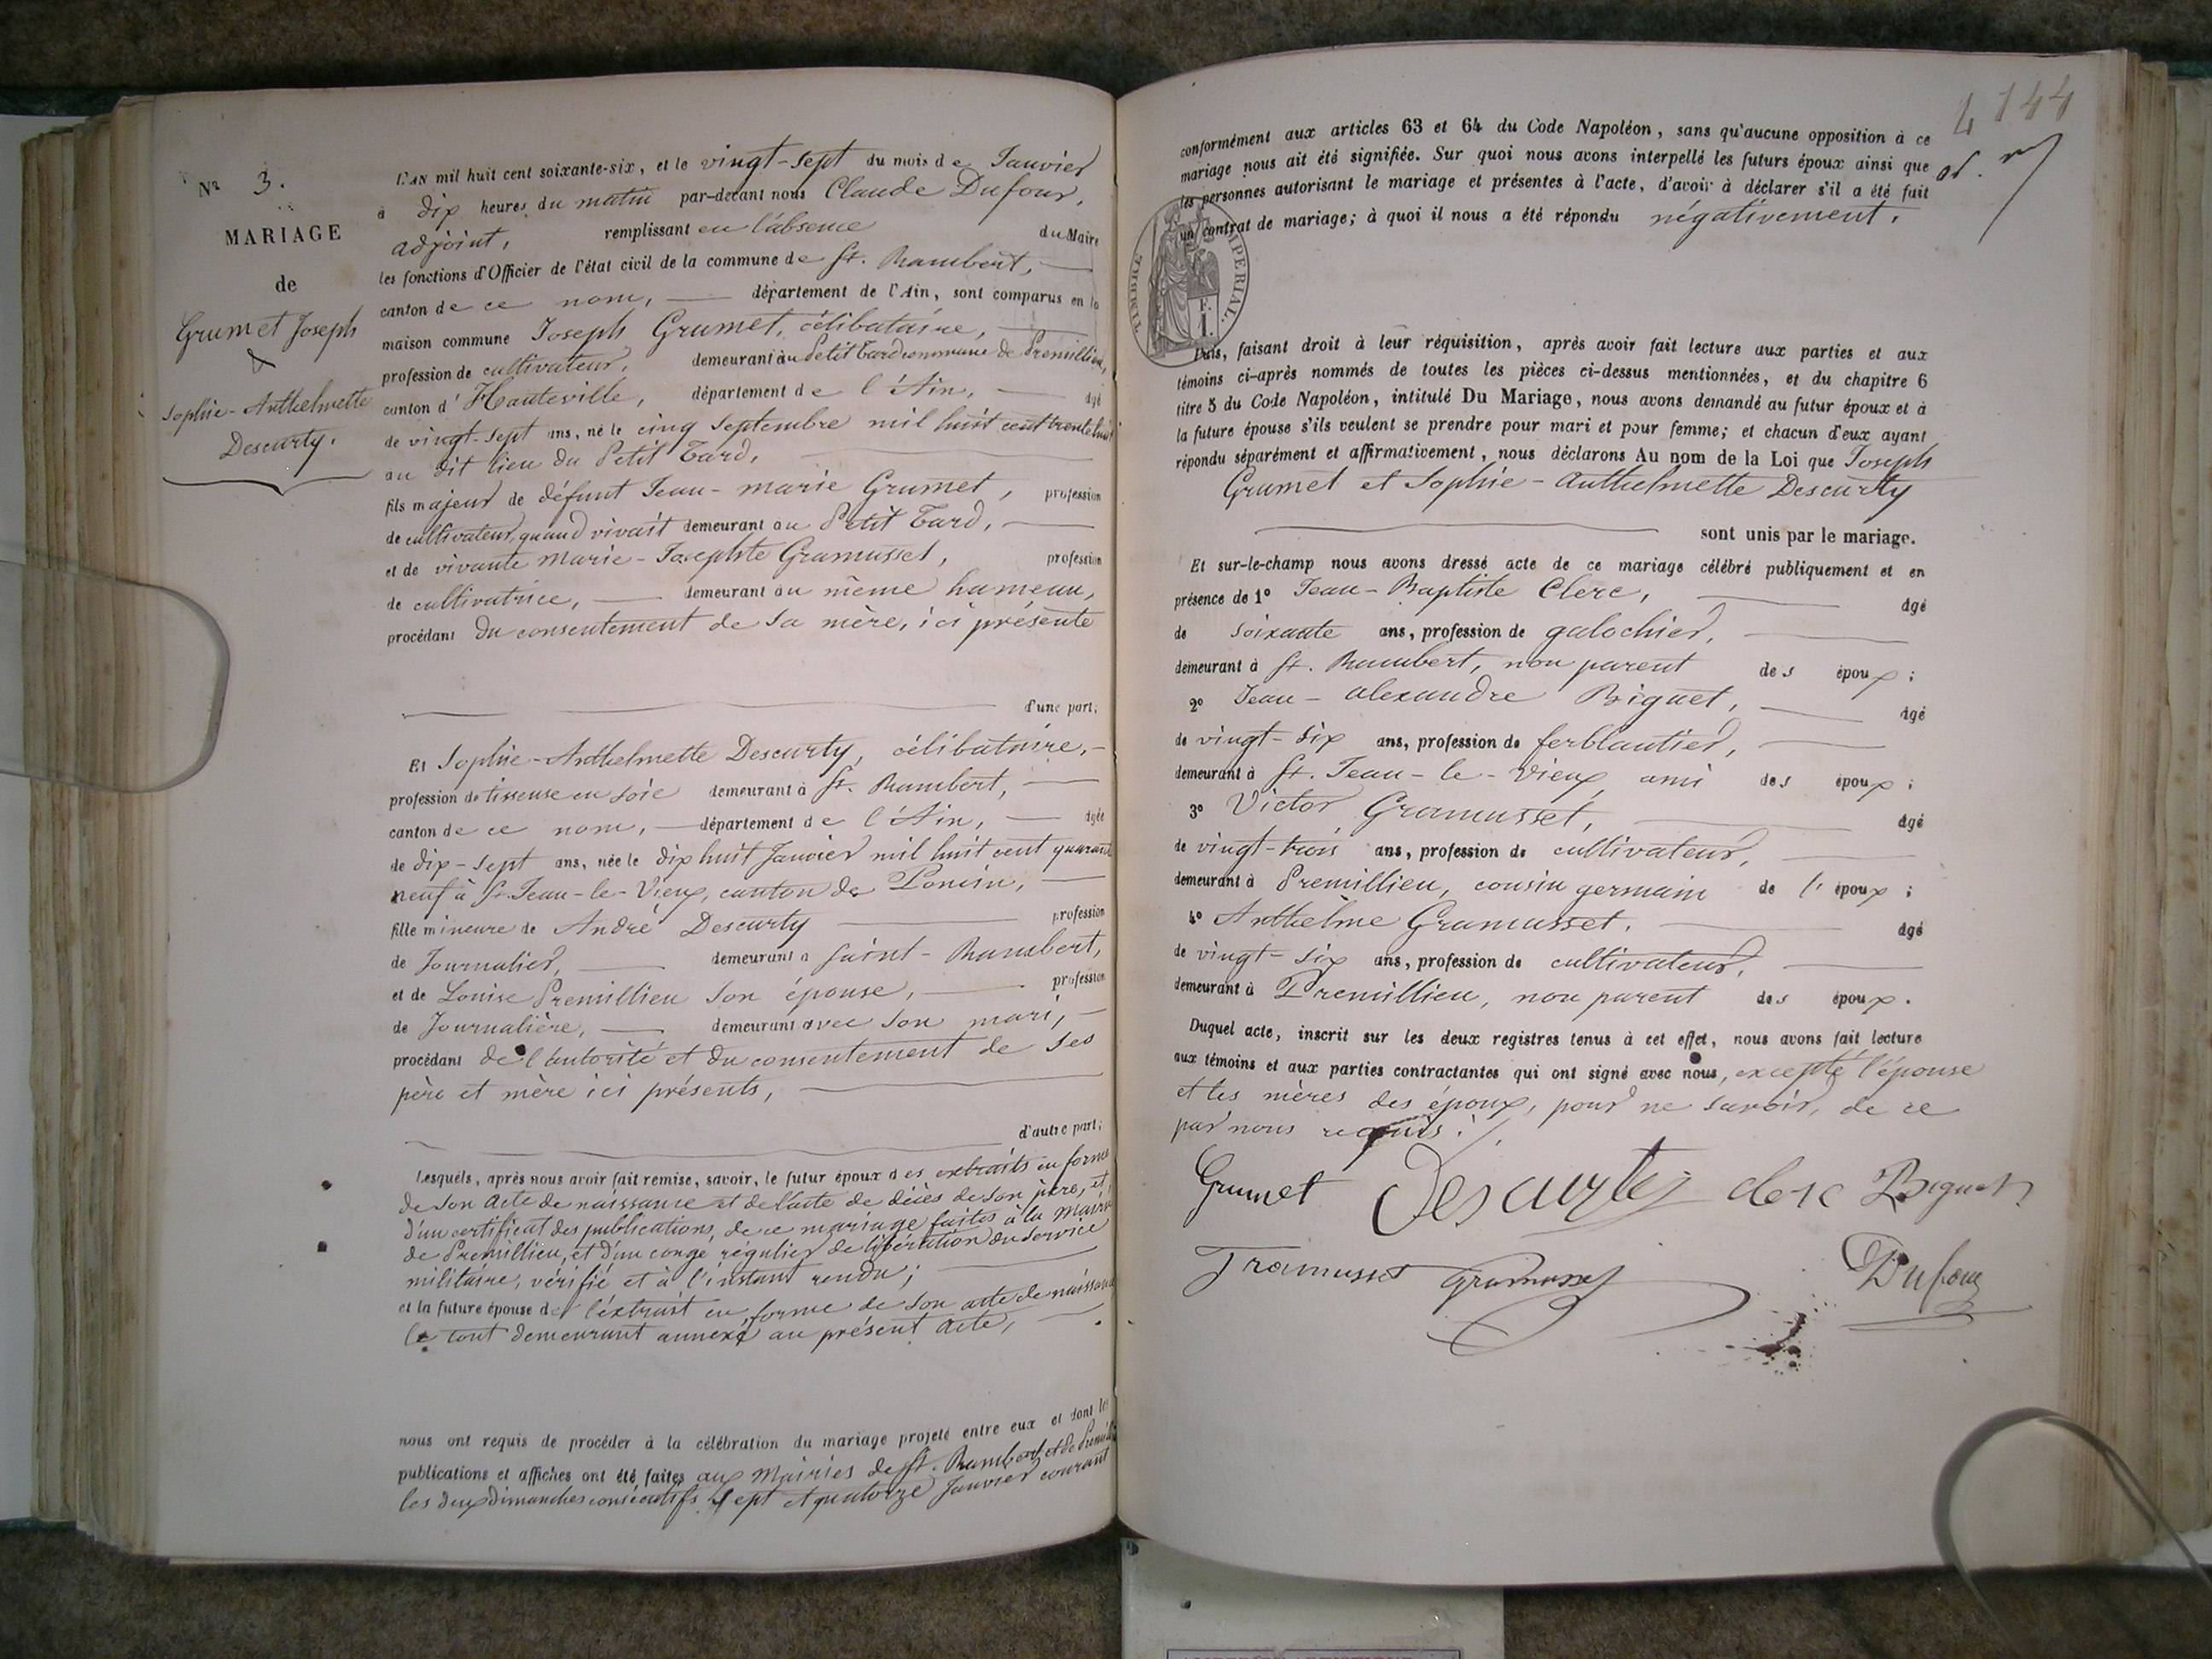 Nº 3.
MARIAGE
de
Grumet Joseph
&
Sophie-Anthelmette
Descurty.
L'AN mil huit cent soixante-six, et le vingt-sept du mois de Janvier
à dix heures du matin par-devant nous Claude Dufour,
adjoint, remplissant en l'absence du Maire
les fonctions d'Officier de l'état civil de la commune de St. Rambert,
canton de ce nom, département de l'Ain, sont comparus en la
maison commune Joseph Grumet, célibataire,
profession de cultivateur, demeurant au Petit Tard commune de Premillieu,
canton d'Hauteville, département de l'Ain, âgé
de vingt-sept ans, né le cinq Septembre mil huit cent trente huit
au dit lieu du Petit Tard,
fils majeur de défunt Jean-marie Grumet, profession
de cultivateur, quand vivait demeurant au Petit Tard,
et de vivante Marie-Josephte Gramusset, profession
de cultivatrice, demeurant au même hameau,
procédant du consentement de sa mère, ici présente
d'une part;
Et Sophie-Anthelmette Descurty, célibataire,
profession de tisseuse en soie demeurant à St. Rambert,
canton de ce nom, département de l'Ain, âgée
de dix-sept ans, née le dix huit Janvier mil huit cent quarante
neuf à St. Jean-le-Vieux, canton de Poncin,
fille mineure de André Descurty profession
de Journalier, demeurant à Saint-Rambert,
et de Louise Premillieu son épouse, profession
de Journalière, demeurant avec son mari,
procédant de l'autorité et du consentement de ses
père et mère ici présents,
d'autre part;
Lesquels, après nous avoir fait remise, savoir, le futur époux des extraits en forme
de son acte de naissance et de l'acte de décès de son père, et
d'un certificat des publications, de ce mariage faites à la Mairie
de Premillieu, et d'un congé régulier de libération du service
militaire, vérifié et à l'instant rendu;
et la future épouse de l'extrait en forme de son acte de naissance
le tout demeurant annexé au présent acte,
nous ont requis de procéder à la célébration du mariage projeté entre eux et dont les
publications et affiches ont été faites aux Mairies de St. Rambert et de Premillieu
les deux dimanches consécutifs sept et quatorze Janvier courant
4 144
conformément aux articles 63 et 64 du Code Napoléon, sans qu'aucune opposition à ce
mariage nous ait été signifiée. Sur quoi nous avons interpellé les futurs époux ainsi que
les personnes autorisant le mariage et présentes à l'acte, d'avoir à déclarer s'il a été fait
un contrat de mariage; à quoi il nous a été répondu négativement.
TIMBRE IMPERIAL.
Puis, faisant droit à leur réquisition, après avoir fait lecture aux parties et aux
témoins ci-après nommés de toutes les pièces ci-dessus mentionnées, et du chapitre 6
titre 5 du Code Napoléon, intitulé Du Mariage, nous avons demandé au futur époux et à
la future épouse s'ils veulent se prendre pour mari et pour femme; et chacun d'eux ayant
répondu séparément et affirmativement, nous déclarons Au nom de la Loi que Joseph
Grumet et Sophie-Anthelmette Descurty
sont unis par le mariage.
Et sur-le-champ nous avons dressé acte de ce mariage célébré publiquement et en
présence de 1º Jean-Baptiste Clerc, âgé
de soixante ans, profession de galochier,
demeurant à St. Rambert, non parent des époux;
2º Jean-Alexandre Biguet, âgé
de vingt-six ans, profession de ferblantier,
demeurant à St. Jean-le-Vieux, ami des époux;
3º Victor Gramusset, âgé
de vingt-trois ans, profession de cultivateur,
demeurant à Premillieu, cousin germain de l'époux;
4º Anthelme Gramusset, âgé
de vingt-six ans, profession de cultivateur,
demeurant à Premillieu, non parent des époux.
Duquel acte, inscrit sur les deux registres tenus à cet effet, nous avons fait lecture
aux témoins et aux parties contractantes qui ont signé avec nous, excepté l'épouse
et les mères des époux, pour ne savoir, de ce
par nous requis.
Grumet Descurtes clerc Biguet
Gramusset Gramusset Dufour